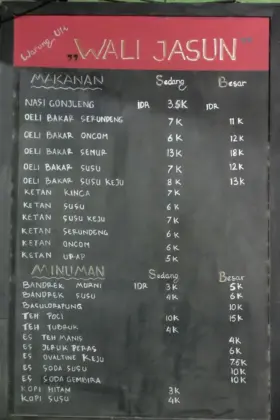 Warung Uli
"WALI JASUN"
MAKANAN Sedang Besar
NASI GONJLENG IDR 3.5K IDR
OELI BAKAR SERUNDENG 7K 11K
OELI BAKAR ONCOM 6K 12K
OELI BAKAR SEMUR 13K 18K
OELI BAKAR SUSU 7K 12K
OELI BAKAR SUSU KEJU 8K 13K
KETAN KINCA 7K
KETAN SUSU 6K
KETAN SUSU KEJU 7K
KETAN SERUNDENG 6K
KETAN ONCOM 6K
KETAN URAP 5K
MINUMAN Sedang Besar
BANDREK MURNI IDR 3K 5K
BANDREK SUSU 4K 6K
BAJIGUR 10K
TEH POCI 10K 15K
TEH TUBRUK 4K
ES TEH MANIS 4K
ES JERUK PERAS 6K
ES OVALTINE KEJU 7.5K
ES SODA SUSU 10K
ES SODA GEMBIRA 10K
KOPI HITAM 3K
KOPI SUSU 4K